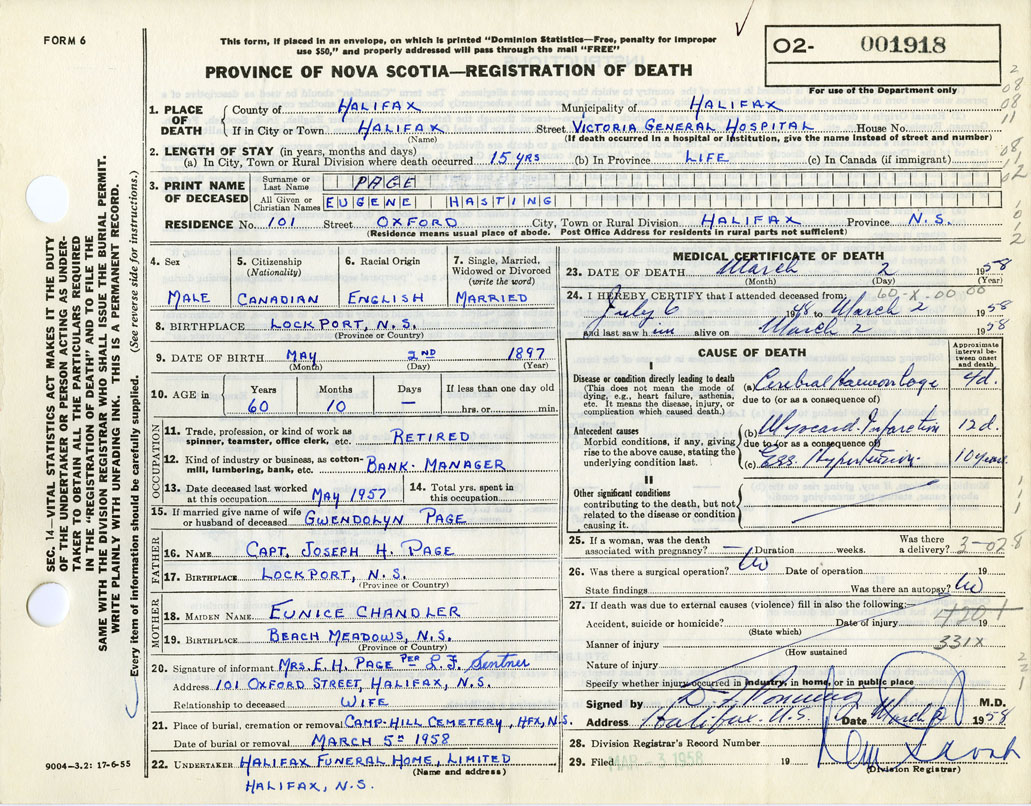 FORM 6
This form, if placed in an envelope, on which is printed "Dominion Statistics—Free, penalty for improper
use $50," and properly addressed will pass through the mail "FREE"
PROVINCE OF NOVA SCOTIA—REGISTRATION OF DEATH
02- 001918
For use of the Department only
1. PLACE OF DEATH
County of HALIFAX Municipality of HALIFAX
If in City or Town HALIFAX Street VICTORIA GENERAL HOSPITAL House No.
(Name) (If death occurred in a hospital or institution, give the name instead of street and number)
2. LENGTH OF STAY (in years, months and days)
(a) In City, Town or Rural Division where death occurred 15 YRS (b) In Province LIFE (c) In Canada (if immigrant)
3. PRINT NAME OF DECEASED
Surname or Last Name PAGE
All Given or Christian Names EUGENE HASTING
RESIDENCE No. 101 Street OXFORD City, Town or Rural Division HALIFAX Province N.S.
(Residence means usual place of abode. Post Office Address for residents in rural parts not sufficient)
4. Sex
MALE
5. Citizenship
(Nationality)
CANADIAN
6. Racial Origin
ENGLISH
7. Single, Married,
Widowed or Divorced
(write the word)
MARRIED
8. BIRTHPLACE LOCKPORT, N.S.
(Province or Country)
9. DATE OF BIRTH MAY 2ND 1897
(Month) (Day) (Year)
10. AGE in Years Months Days If less than one day old
60 10 — hrs. or min.
OCCUPATION
11. Trade, profession, or kind of work as
spinner, teamster, office clerk, etc. RETIRED
12. Kind of industry or business, as cotton-
mill, lumbering, bank, etc. BANK-MANAGER
13. Date deceased last worked
at this occupation MAY 1957
14. Total yrs. spent in
this occupation
15. If married give name of wife
or husband of deceased GWENDOLYN PAGE
FATHER
16. NAME CAPT. JOSEPH H. PAGE
17. BIRTHPLACE LOCKPORT, N.S.
(Province or Country)
MOTHER
18. MAIDEN NAME EUNICE CHANDLER
19. BIRTHPLACE BEACH MEADOWS, N.S.
(Province or Country)
20. Signature of informant MRS. E. H. PAGE PER L. F. Sentner
Address 101 OXFORD STREET, HALIFAX, N.S.
Relationship to deceased WIFE
21. Place of burial, cremation or removal CAMP-HILL CEMETERY, HFX, N.S.
Date of burial or removal MARCH 5TH 1958
22. UNDERTAKER HALIFAX FUNERAL HOME, LIMITED
(Name and address)
HALIFAX, N.S.
MEDICAL CERTIFICATE OF DEATH
23. DATE OF DEATH March 2 1958
(Month) (Day) (Year)
60-X-00 00
24. I HEREBY CERTIFY that I attended deceased from:
July 6 1948 to March 2 1958
and last saw him alive on March 2 1958
CAUSE OF DEATH
Approximate
interval be-
tween onset
and death
I
Disease or condition directly leading to death
(This does not mean the mode of
dying, e.g., heart failure, asthenia,
etc. It means the disease, injury, or
complication which caused death.)
(a) Cerebral Haemorrhage 4d.
due to (or as a consequence of)
Antecedent causes
Morbid conditions, if any, giving
rise to the above cause, stating the
underlying condition last.
(b) Myocard. Infarction 12d.
due to (or as a consequence of)
(c) Ess. Hypertension 10 years
II
Other significant conditions
contributing to the death, but not
related to the disease or condition
causing it.
25. If a woman, was the death
associated with pregnancy? — Duration weeks. Was there
a delivery?
26. Was there a surgical operation? No Date of operation 19
State findings Was there an autopsy? No
27. If death was due to external causes (violence) fill in also the following:
Accident, suicide or homicide? Date of injury 19
(State which)
420+
Manner of injury 331X
(How sustained
Nature of injury
Specify whether injury occurred in industry, in home, or in public place
Signed by M.D.
Address Halifax, N.S. Date March 1958
28. Division Registrar's Record Number
29. Filed MAR - 3 1958 19
(Division Registrar)
SEC. 14—VITAL STATISTICS ACT MAKES IT THE DUTY
OF THE UNDERTAKER OR PERSON ACTING AS UNDER-
TAKER TO OBTAIN ALL THE PARTICULARS REQUIRED
IN THE "REGISTRATION OF DEATH" AND TO FILE THE
SAME WITH THE DIVISION REGISTRAR WHO SHALL ISSUE THE BURIAL PERMIT.
WRITE PLAINLY WITH UNFADING INK. THIS IS A PERMANENT RECORD.
Every item of information should be carefully supplied. (See reverse side for instructions.)
9004-3.2: 17-6-55